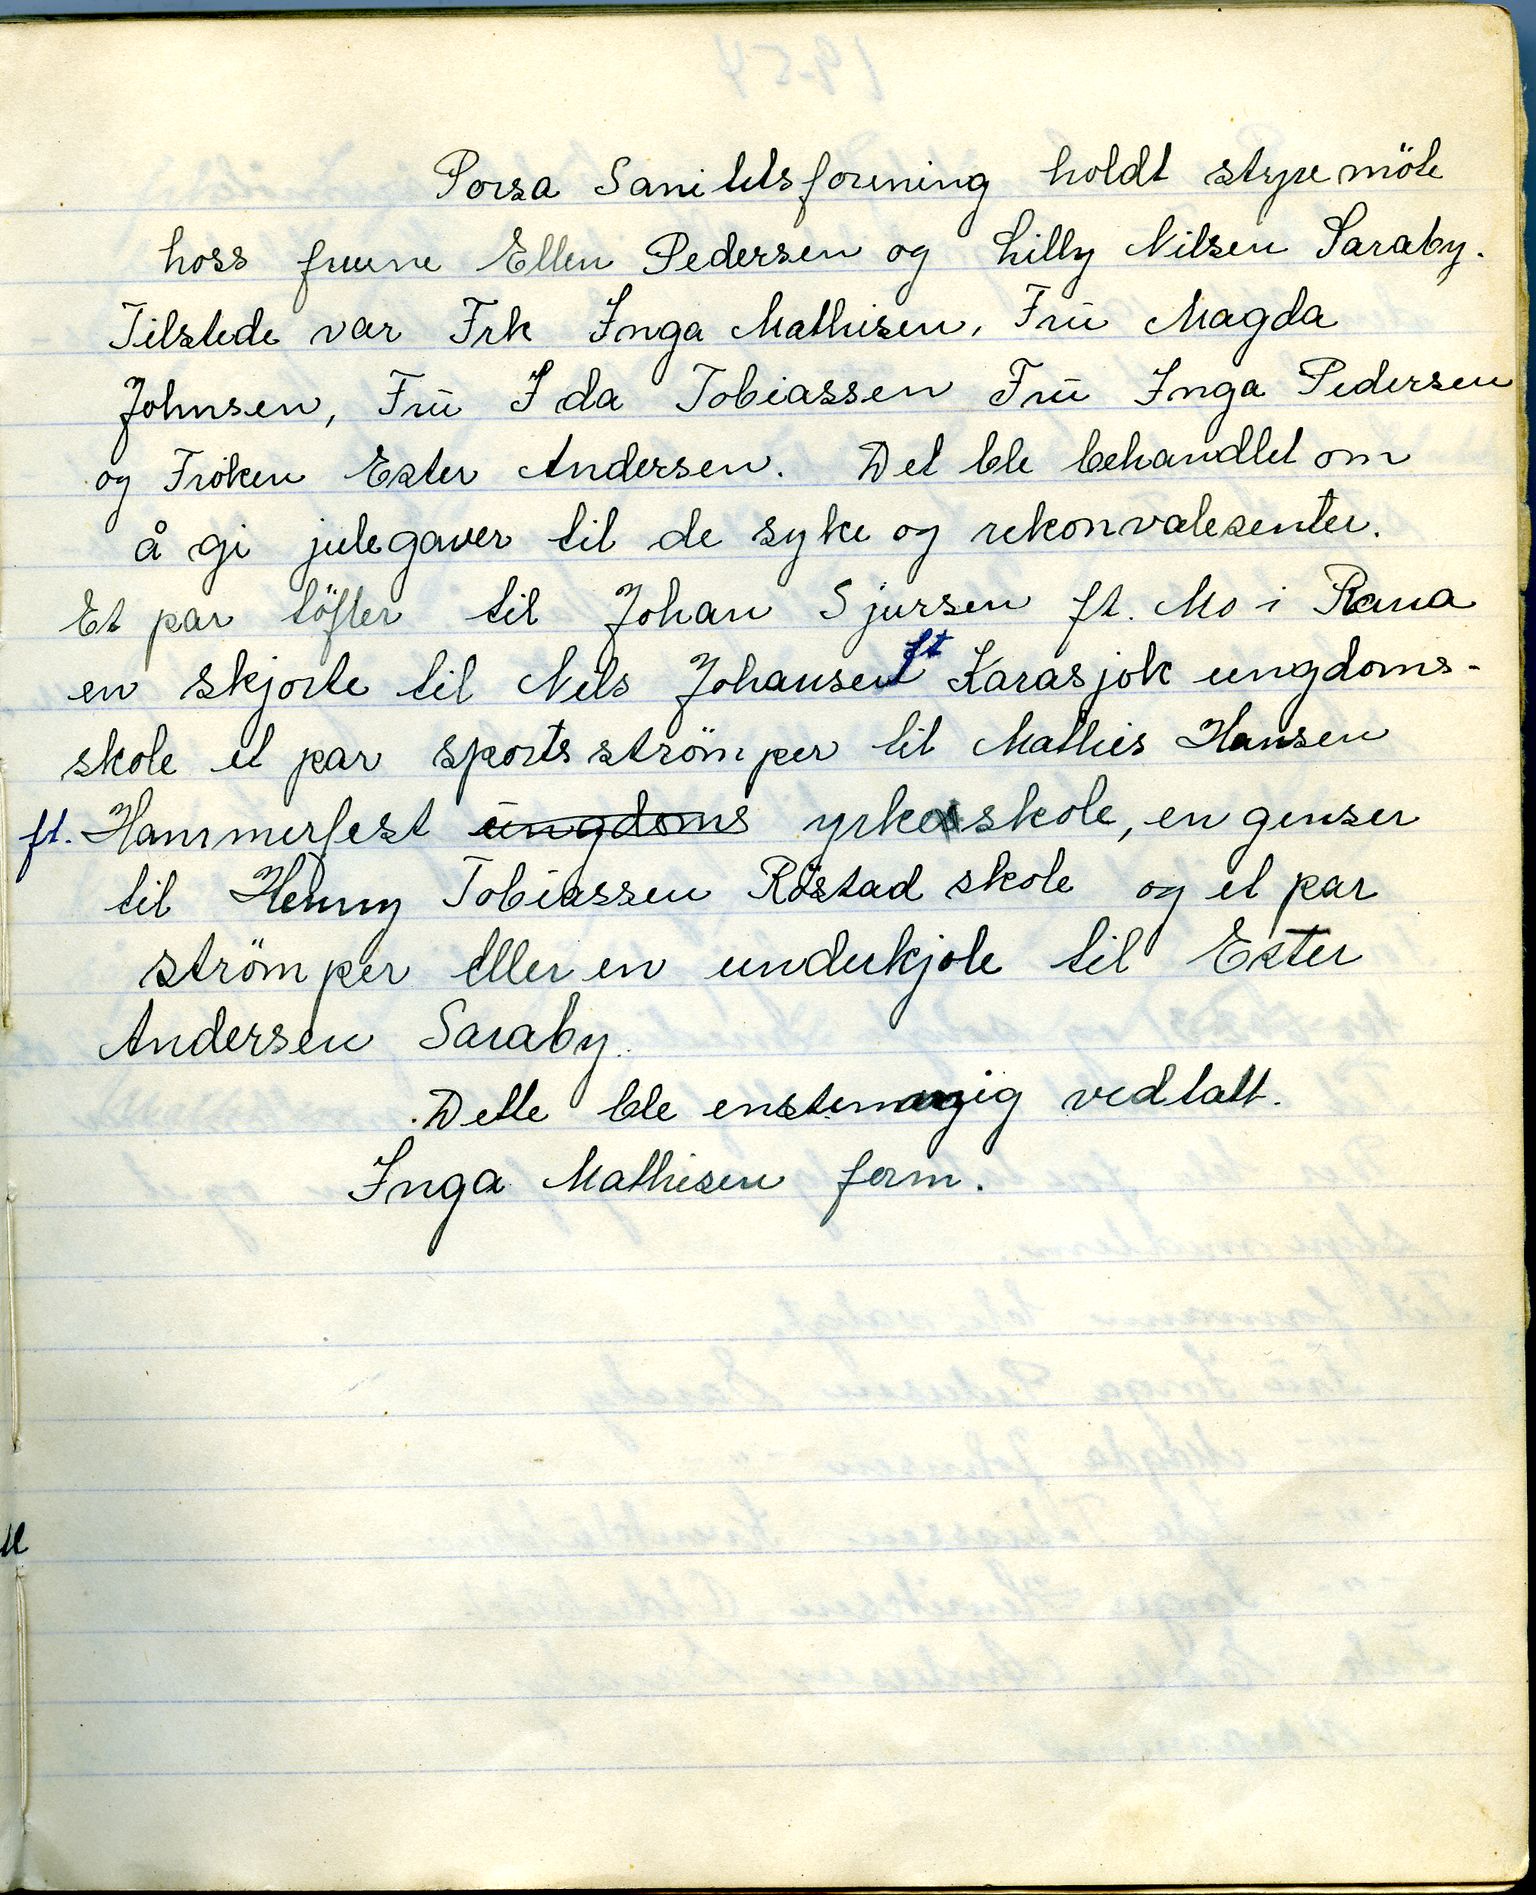 Porsa Sanitetsforening holdt styremöte
hoss fruene Ellen Pedersen og Lilly Nilsen Saraby.
Tilstede var Frk Inga Mathisen, Frü Magda
Johnsen, Frü Ida Tobiassen Frü Inga Pedersen
og Fröken Ester Andersen. Det ble behandlet om
å gi julegaver til de syke og rekonvalesenter.
Et par töfler til Johan Sjursen ft. Mo i Rana
en skjorte til Nels Johansen ft Karasjok ungdoms-
skole et par sportsströmper til Mathis Hansen
ft. Hammerfest üngdoms yrkesskole, en genser
til Henny Tobiassen Röstad skole og et par
strömper eller en underkjole til Ester
Andersen Saraby.
Dette ble enstemmig vedtatt.
Inga Mathisen form.